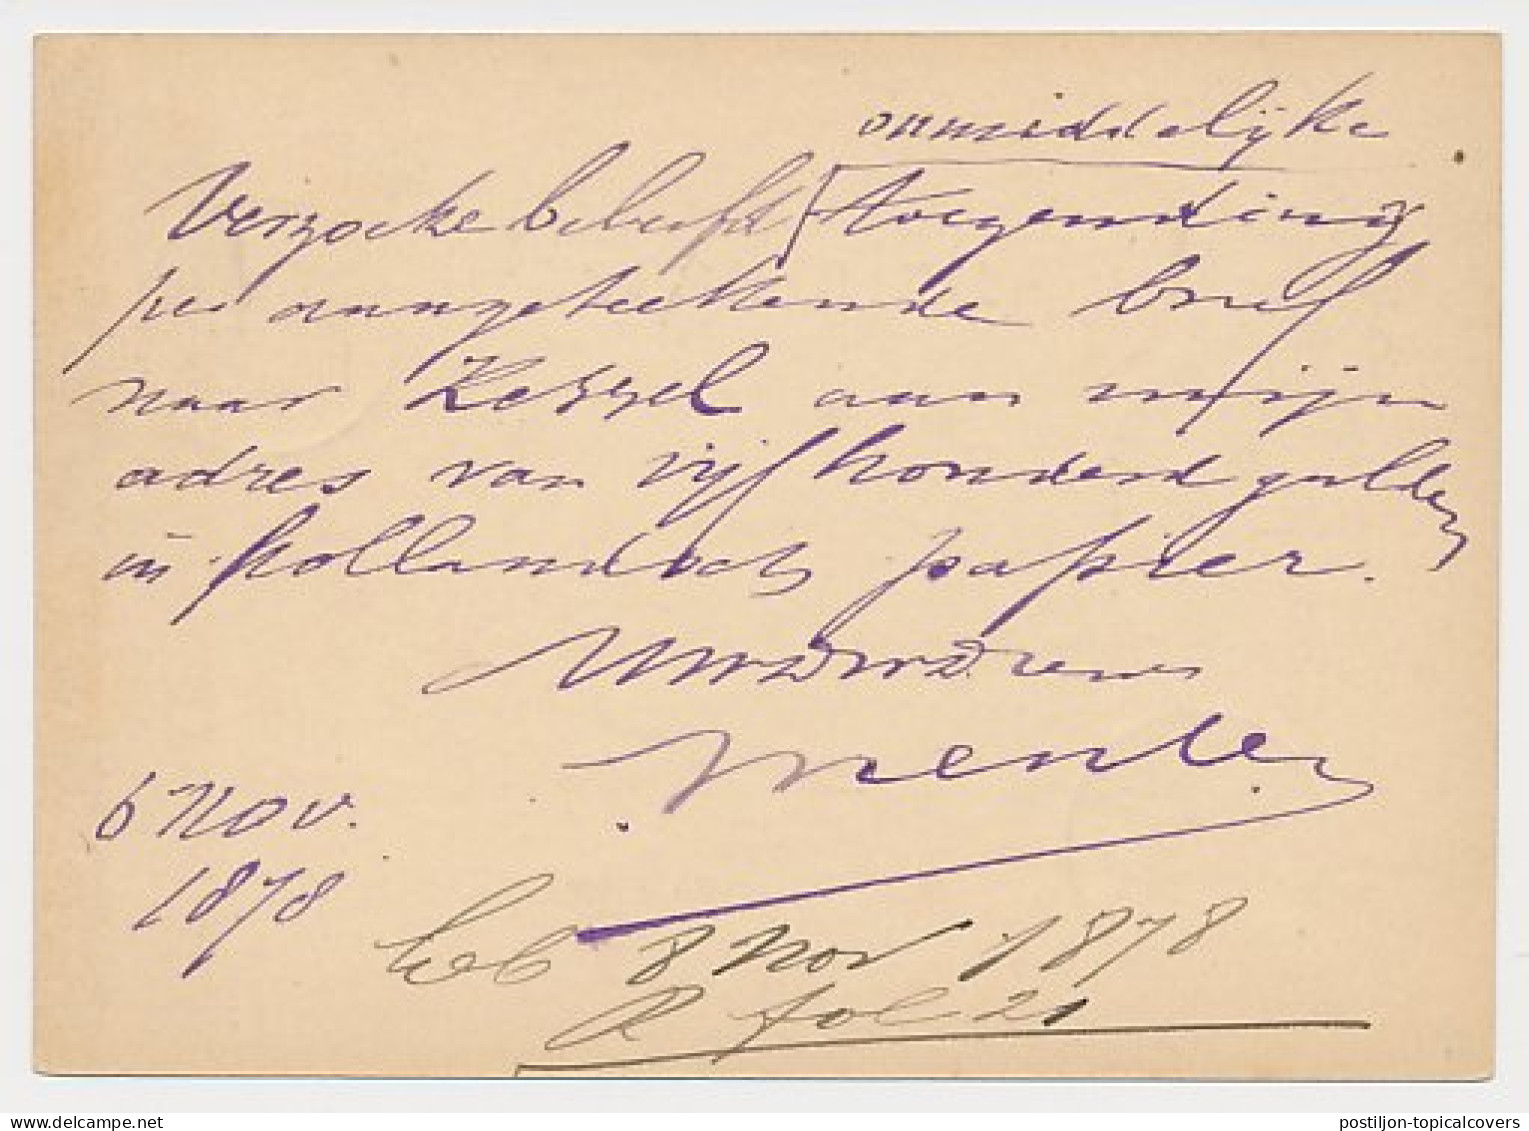 onmiddelijke
Verzoeke beleefd toezending
per aangeteekende brief
naar Kessel aan mijn
adres van vijf honderd gulden
in hollandsch papier.
UwDwDrenr
6 Nov.
1878
8 Nov 1878
R fol 21
postiljon-topicalcovers